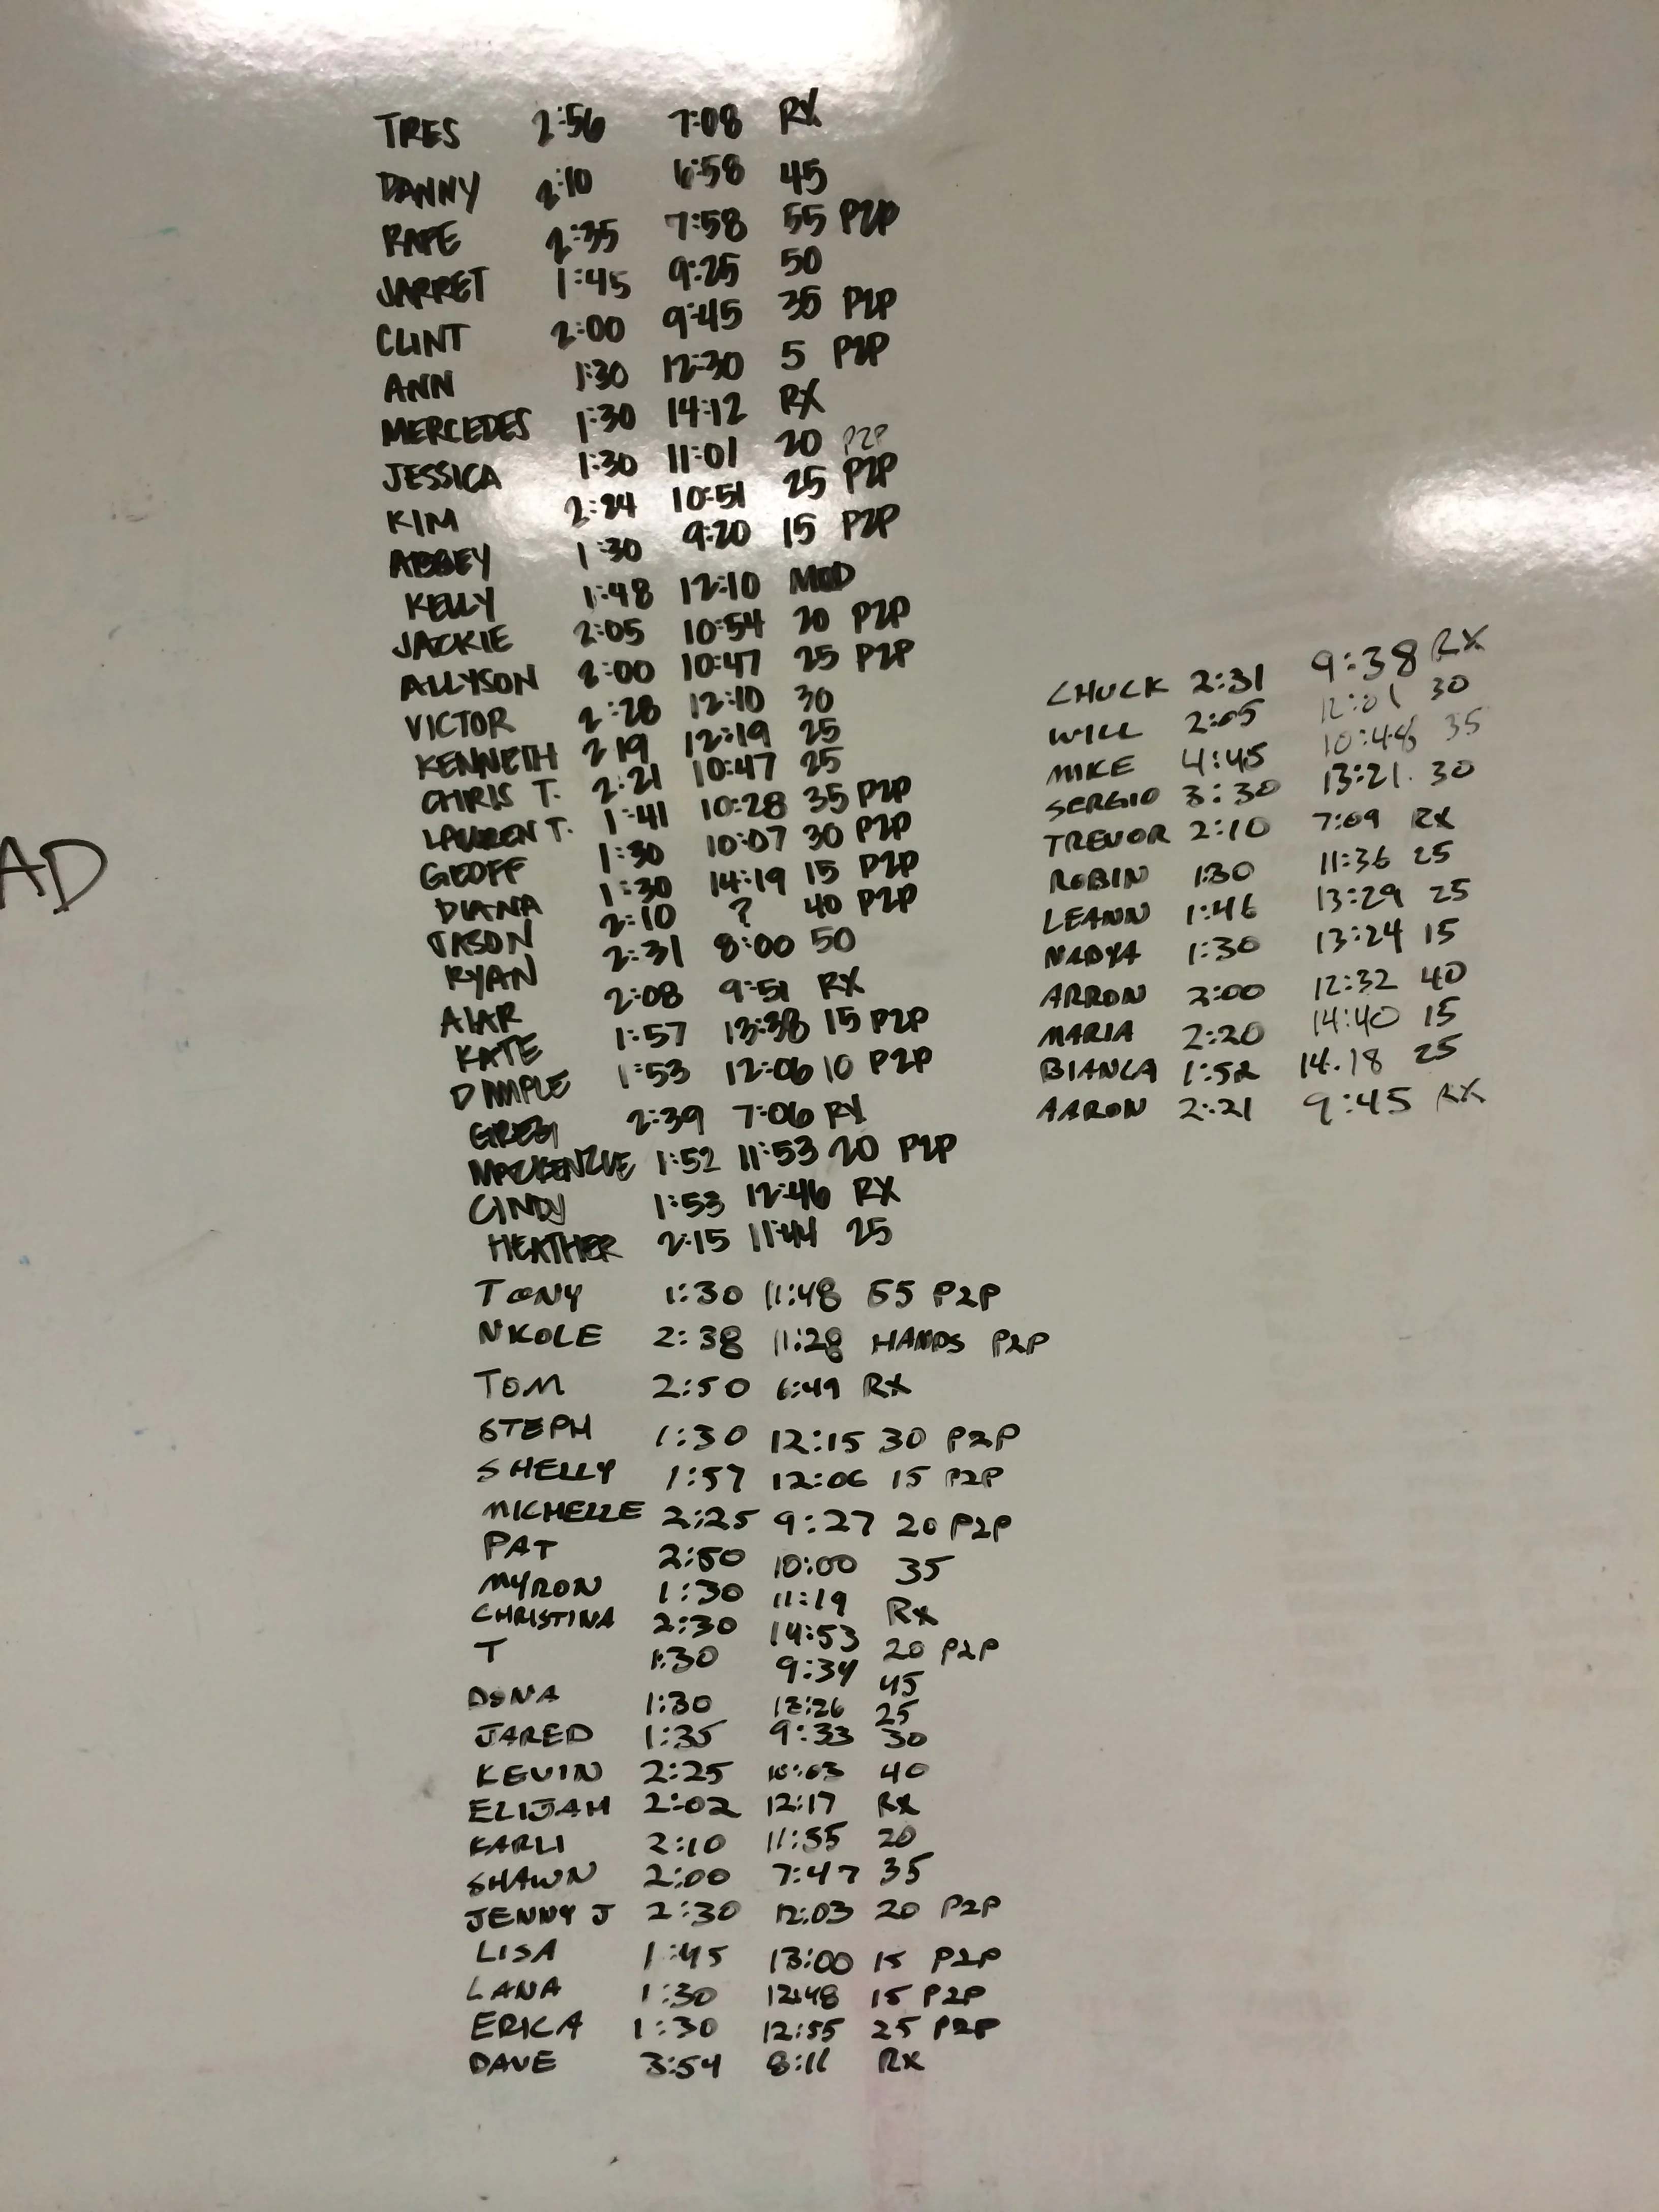 TRES 2:56 7:08 RX
DANNY 2:10 6:58 45
RAPE 2:35 7:58 55 P2P
JARRET 1:45 9:25 50
CLINT 2:00 9:45 35 P2P
ANN 1:30 12:30 5 P2P
MERCEDES 1:30 14:12 RX
JESSICA 1:30 11:01 20 P2P
KIM 2:24 10:51 25 P2P
ABBEY 1:30 9:20 15 P2P
KELLY 1:48 12:10 MOD
JACKIE 2:05 10:54 20 P2P
ALLYSON 2:00 10:47 25 P2P
VICTOR 2:28 12:10 30
KENNETH 2 19 12:19 25
CHRIS T. 2:21 10:47 25
LAUREN T. 1:41 10:28 35 P2P
GEOFF 1:30 10:07 30 P2P
DIANA 1:30 14:19 15 P2P
JASON 2:10 ? 40 P2P
RYAN 2:31 8:00 50
2:08 9:51 RX
KATE 1:57 13:38 15 P2P
DIMPLE 1:53 12:06 10 P2P
GREG 2:39 7:06 RX
MACKENZIE 1:52 11:53 20 P2P
CINDY 1:53 12:46 RX
HEATHER 2:15 11:44 25
TONY 1:30 11:48 55 P2P
NKOLE 2:38 11:28 HANDS P2P
TOM 2:50 6:49 RX
STEPH 1:30 12:15 30 P2P
SHELLY 1:57 12:06 15 P2P
MICHELLE 2:25 9:27 20 P2P
PAT 2:50 10:00 35
MYRON 1:30 11:19 RX
CHRISTINA 2:30 14:53 20 P2P
T 1:30 9:34 45
DONA 1:30 12:26 25
JARED 1:35 9:33 30
KEVIN 2:25 10:03 40
ELIJAH 2:02 12:17 RX
KARLI 2:10 11:35 20
SHAWN 2:00 7:47 35
JENNY J 2:30 12:03 20 P2P
LISA 1:45 13:00 15 P2P
LANA 1:30 12:48 15 P2P
ERICA 1:30 12:55 25 P2P
DAVE 3:54 8:11 RX
CHUCK 2:31 9:38 RX
WILL 2:05 12:01 30
MIKE 4:45 10:48 35
SERGIO 3:30 13:21. 30
TREVOR 2:10 7:09 RX
ROBIN 1:30 11:36 25
LEANN 1:46 13:29 25
NADYA 1:30 13:24 15
ARRON 2:00 12:32 40
MARIA 2:20 14:40 15
BIANCA 1:52 14.18 25
AARON 2:21 9:45 RX
AD